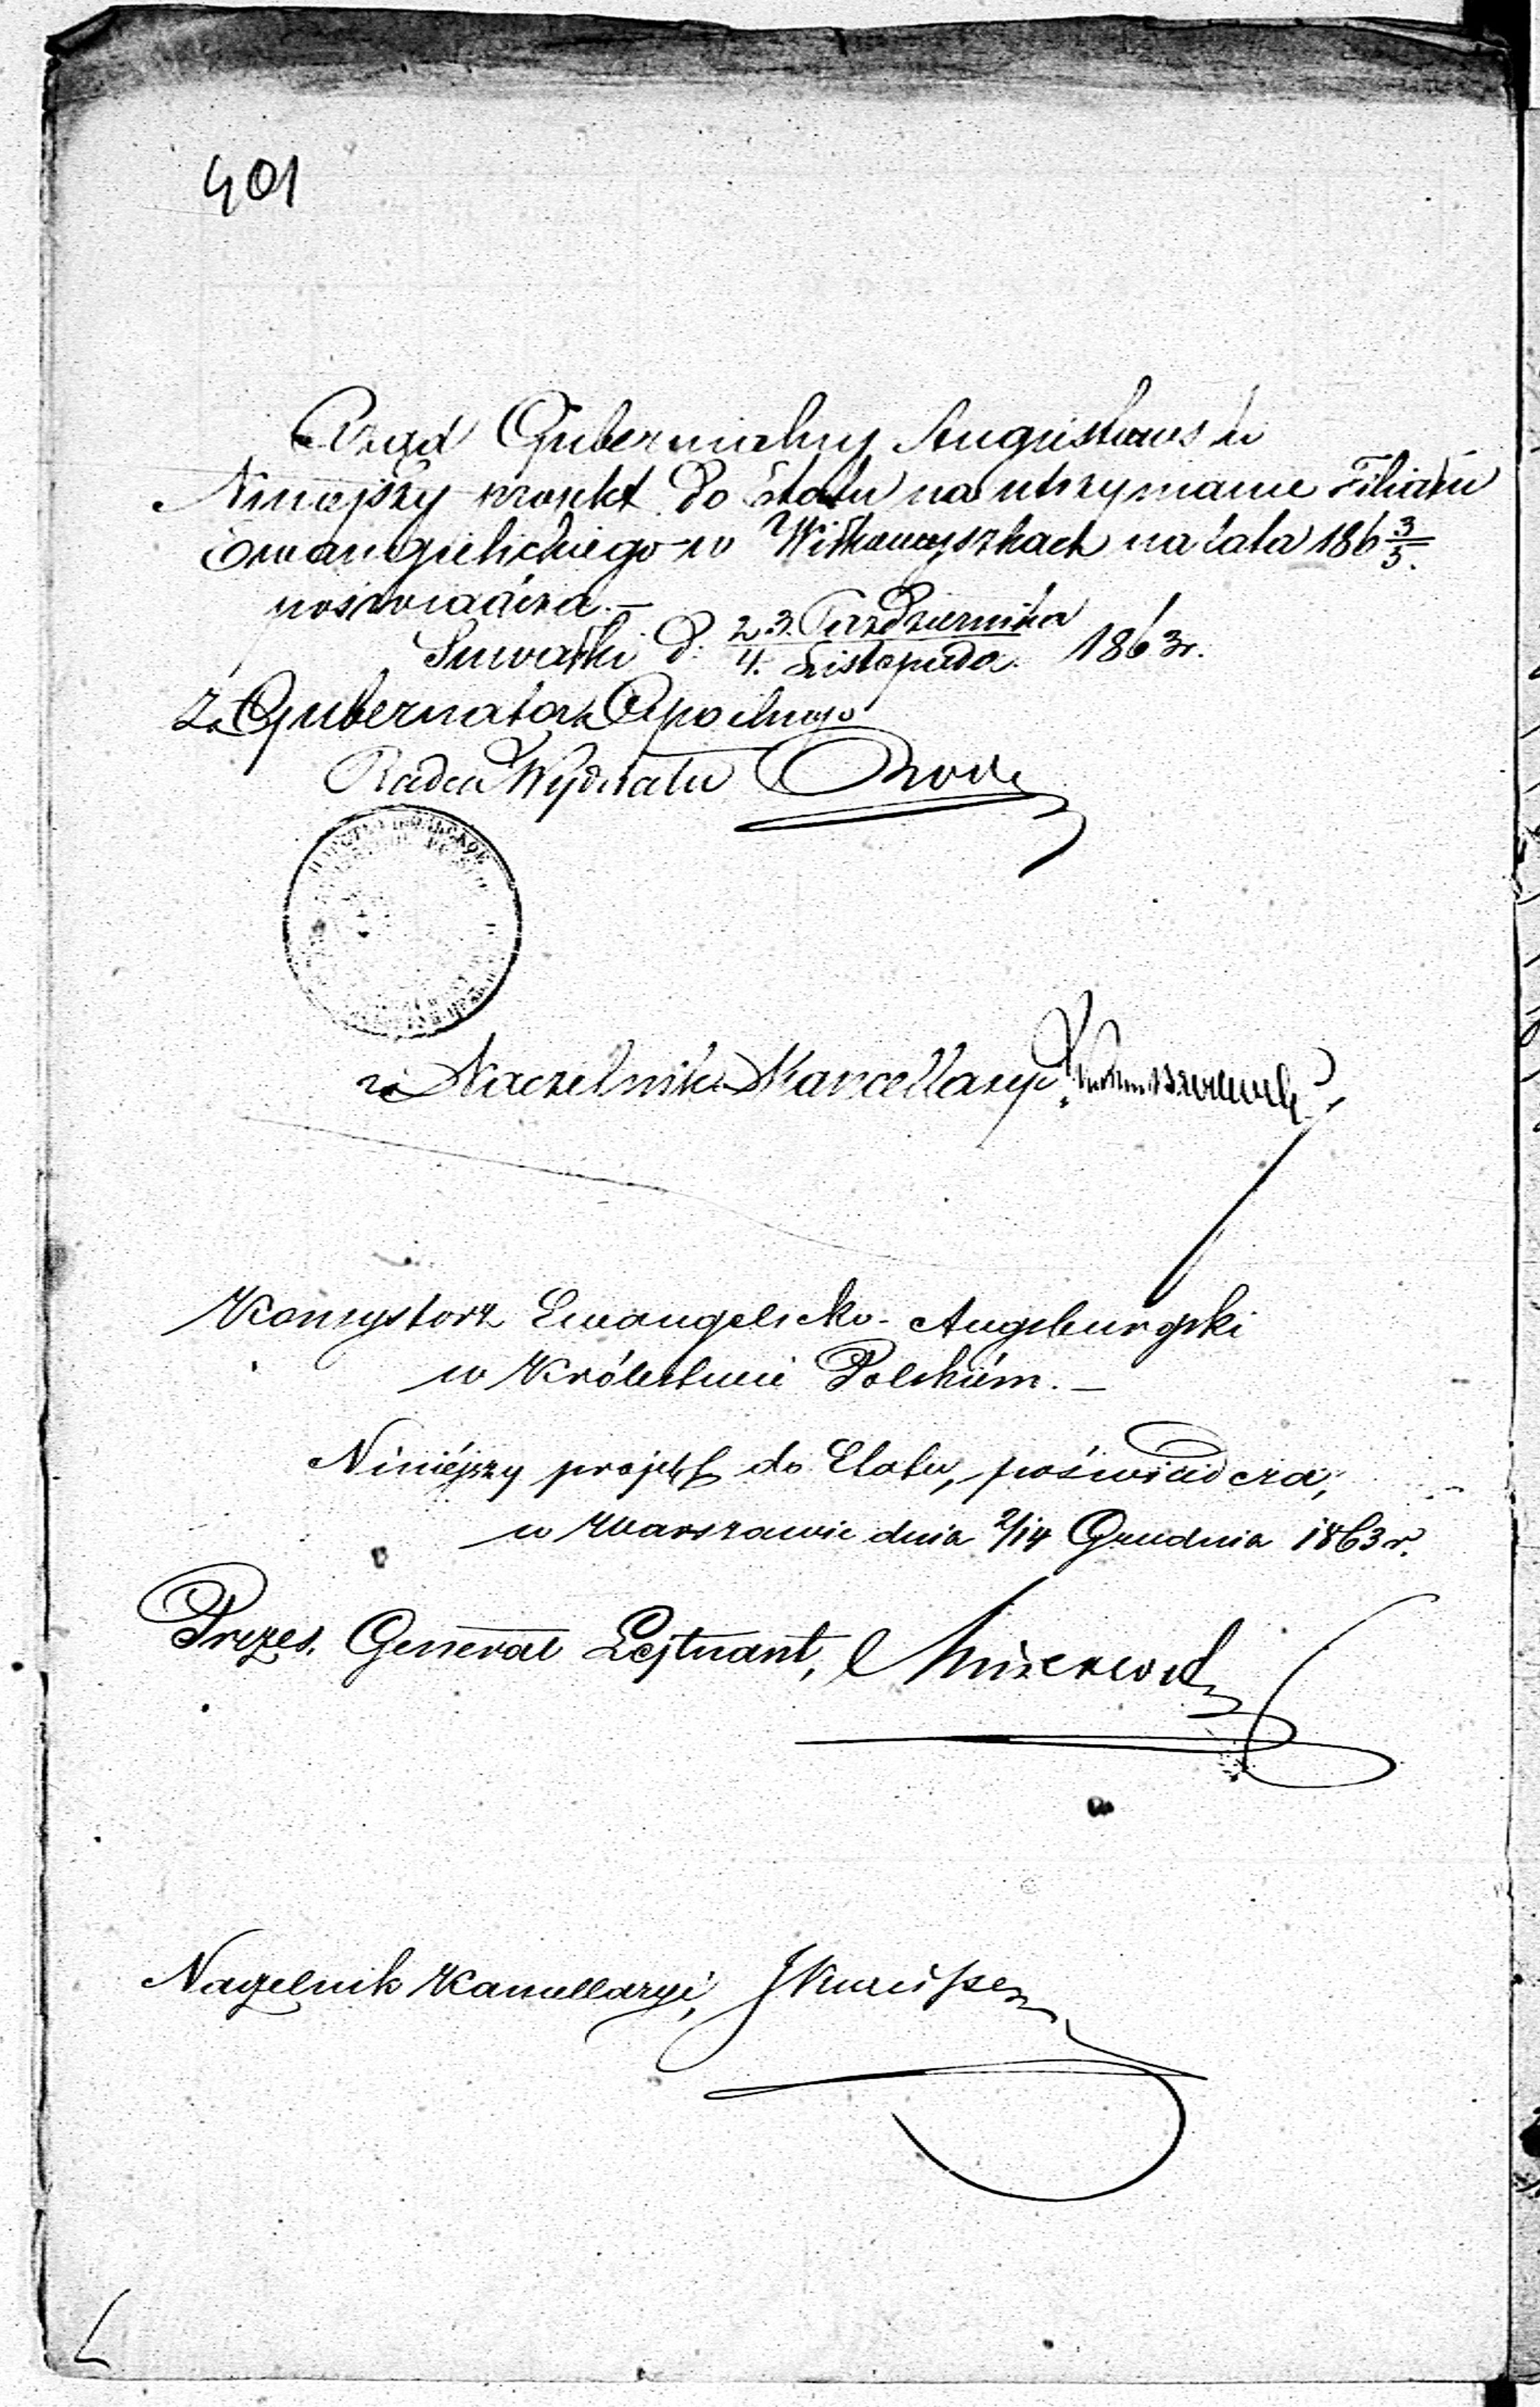 401
Rząd Gubernialny Augustowski
Niniejszy projekt do Etatu na utrzymanie Filiału
Ewangelickiego w Wiłkowyszkach na lata 186 3/5.
poświadcza.—
Suwałki d. 23. Października / 4. Listopada. 1863 r.
za Gubernatora Cywilnego
Radca Wydziału
za Naczelnika Kancellaryi
Konsystorz Ewangelicko-Augsburgski
w Królestwie Polskiém.—
Niniéjszy projekt do Etatu, poświadcza,
w Warszawie dnia 2/14 Grudnia 1863 r.
Prezes, Generał Lejtnant,
Naczelnik Kancellaryi,